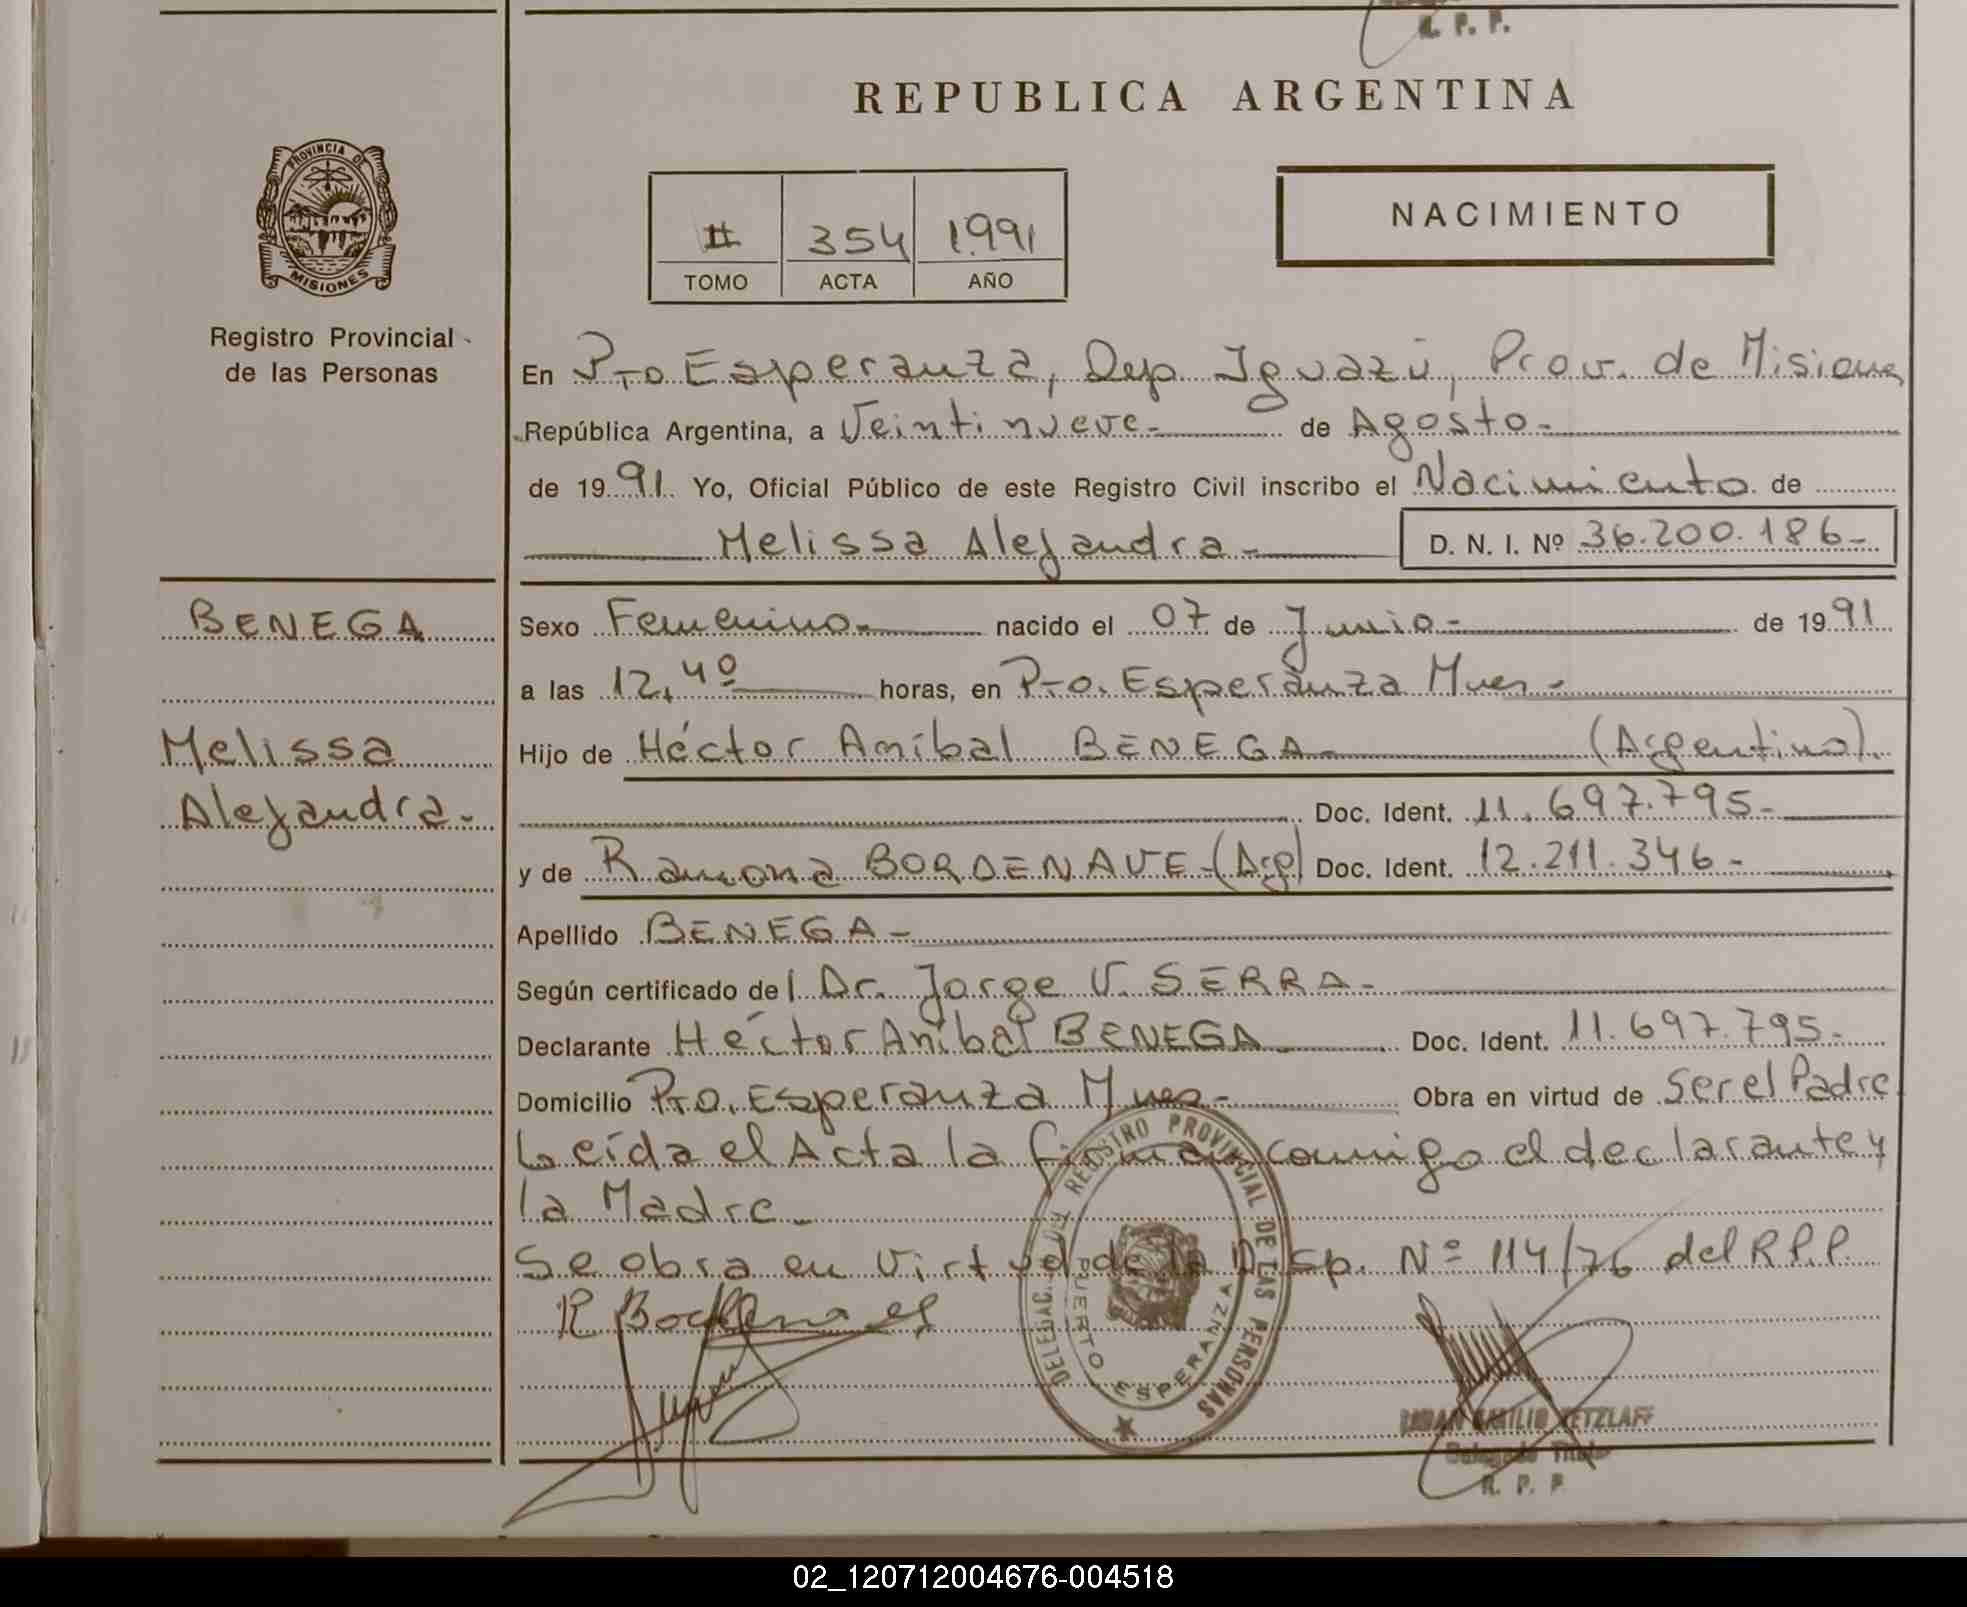 R. P. P.
REPUBLICA ARGENTINA
PROVINCIA DE
MISIONES
Registro Provincial
de las Personas
II 354 1991
TOMO ACTA AÑO
NACIMIENTO
En Pto Esperanza, Dep. Iguazú, Prov. de Misiones
República Argentina, a Veintinueve.- de Agosto.-
de 1991. Yo, Oficial Público de este Registro Civil inscribo el Nacimiento de
Melissa Alejandra.- D. N. I. Nº 36.200.186.-
BENEGA
Melissa
Alejandra.-
Sexo Femenino.- nacido el 07 de Junio.- de 1991
a las 12,40 horas, en Pto. Esperanza Mnes.-
Hijo de Héctor Aníbal BENEGA.- (Argentino).
Doc. Ident. 11.697.795.-
y de Ramona BORDENAVE.-(Arg) Doc. Ident. 12.211.346.-
Apellido BENEGA.-
Según certificado del Dr. Jorge V. SERRA.-
Declarante Héctor Aníbal BENEGA.- Doc. Ident. 11.697.795.-
Domicilio Pto. Esperanza Mnes.- Obra en virtud de Ser el Padre
Leída el Acta la firman conmigo el declarante y
la Madre.-
Se obra en Virtud de la Disp. Nº 114/76 del R.P.P.
DELEGAC. REGISTRO PROVINCIAL DE LAS PERSONAS
PUERTO ESPERANZA
EMILIO RETZLAFF
Delegado Titular
R. P. P
02_120712004676-004518